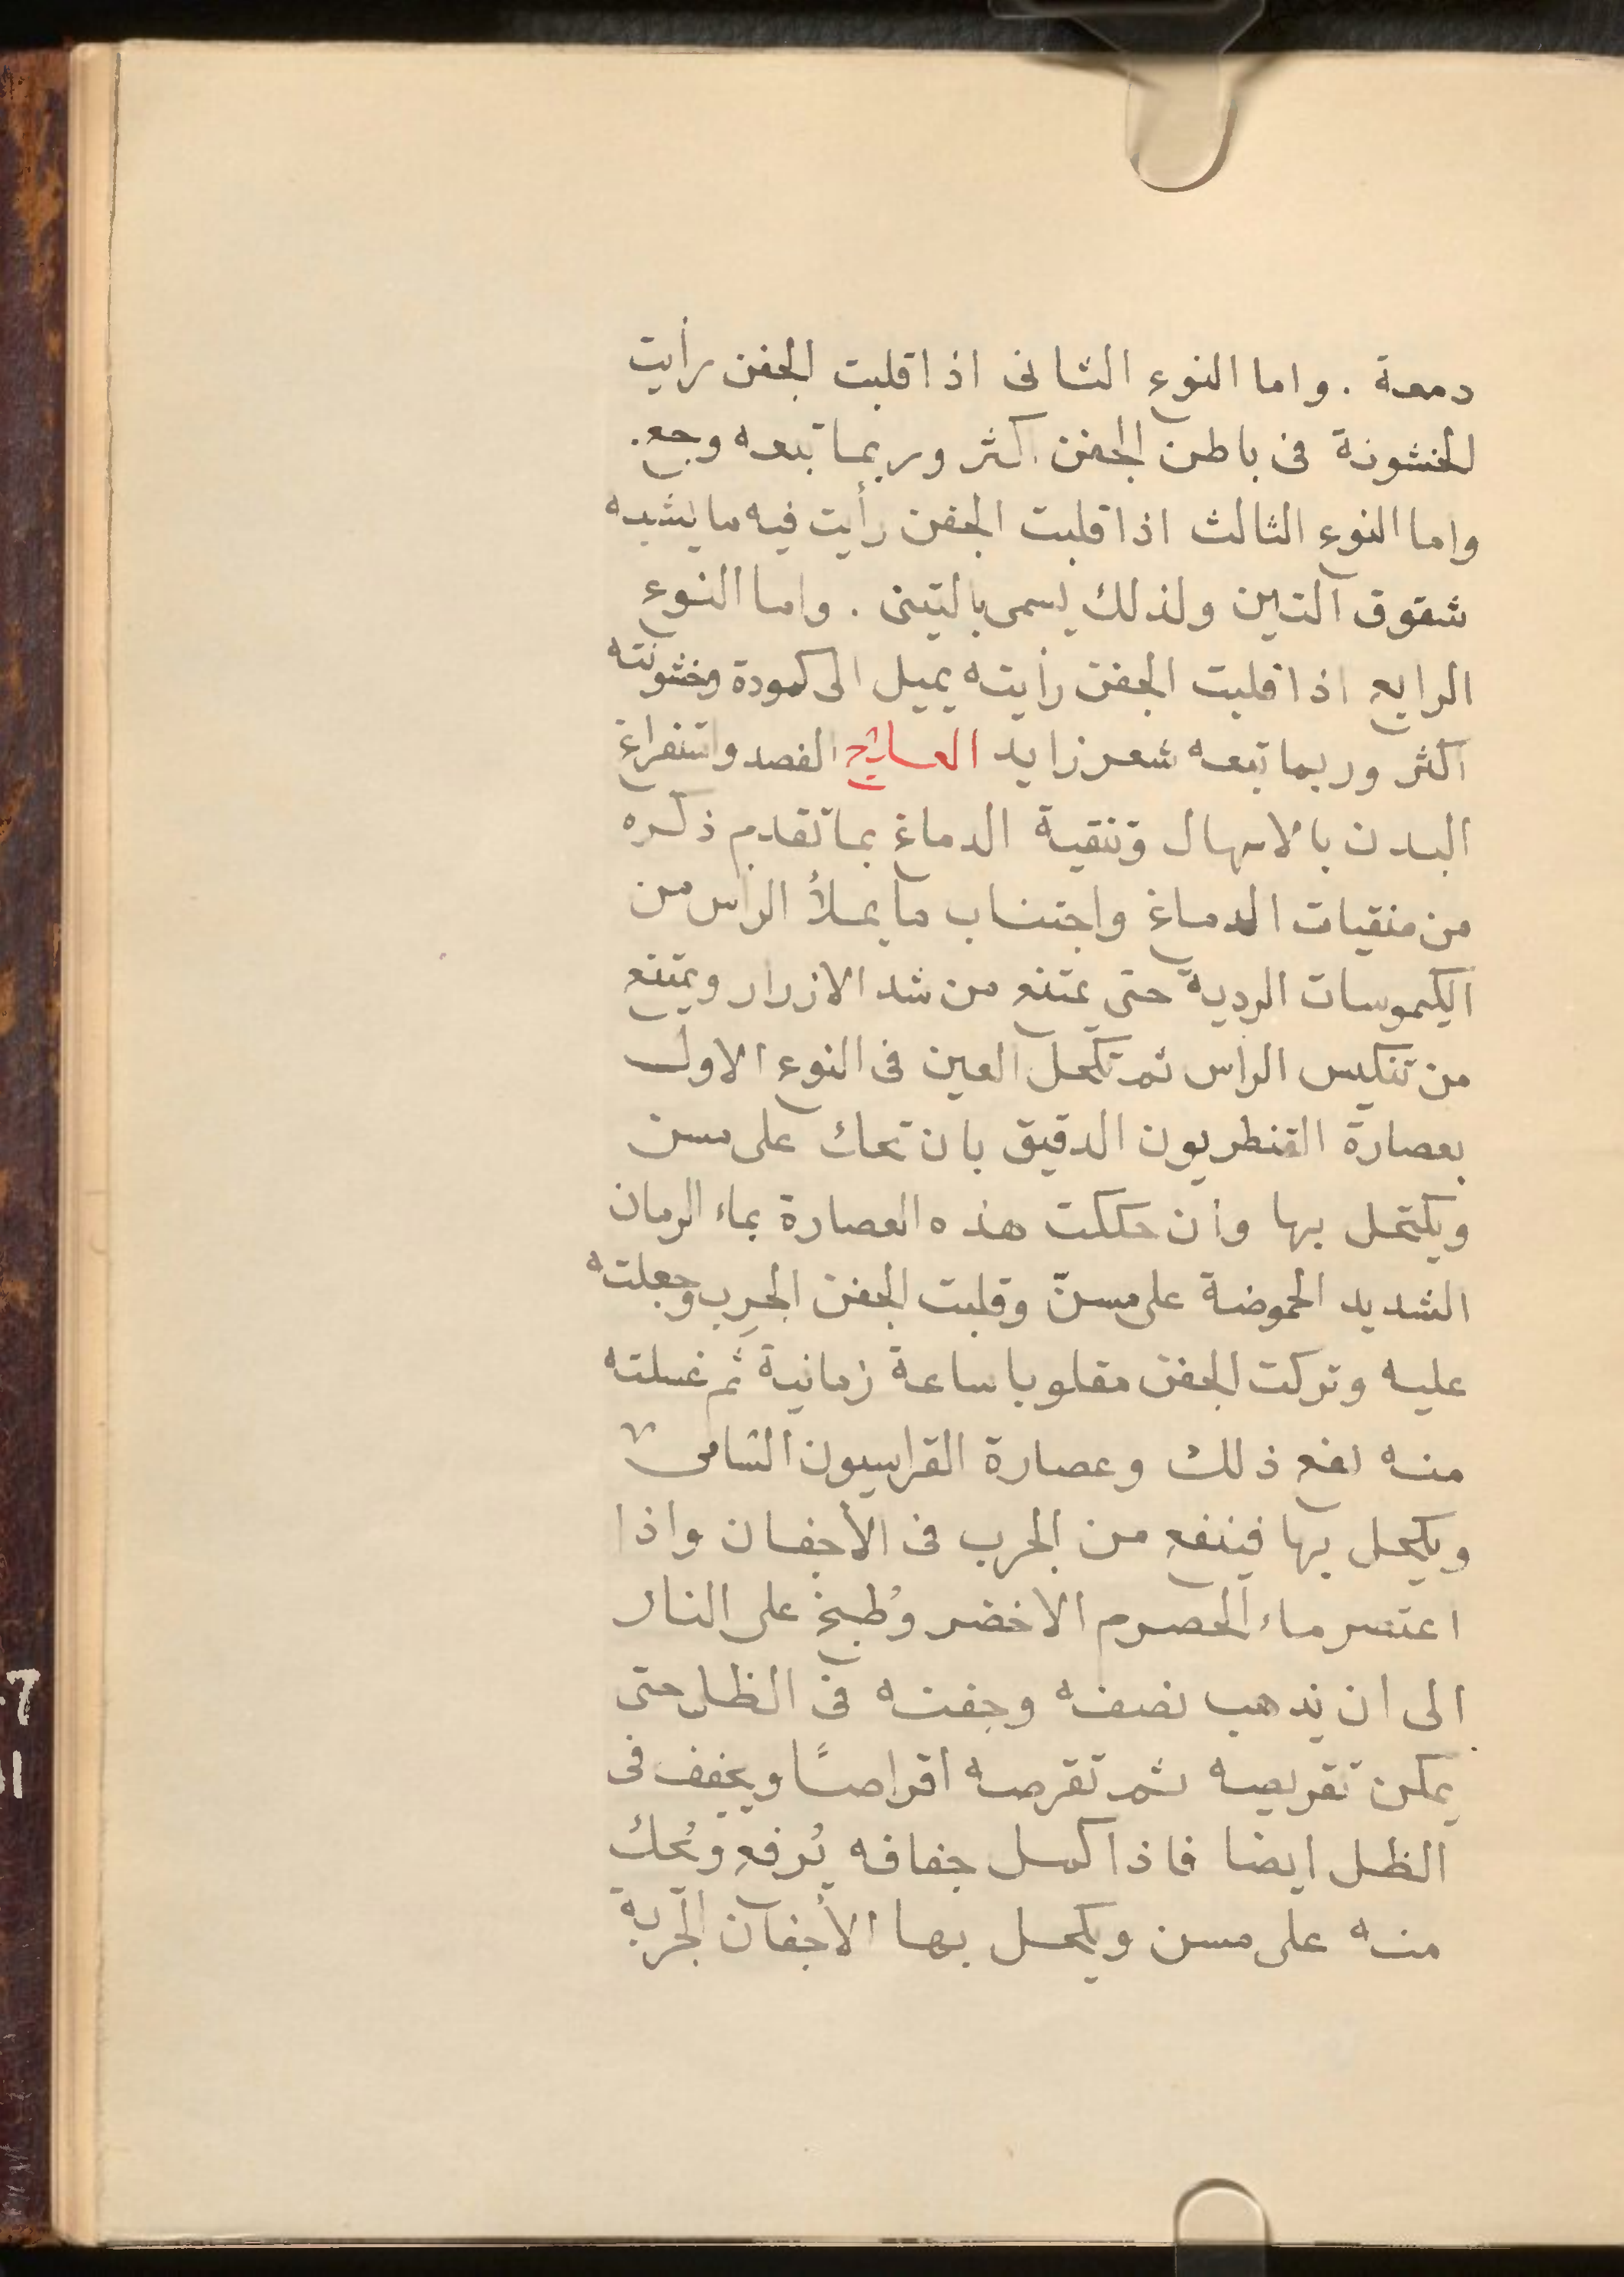 دمعة . واما النوع الثانى اذا قلبت الجفن رأيت
الخشونة فى باطن الجفن اكثر وربما تبعه وجع .
واما النوع الثالث اذا قلبت الجفن رأيت فيه ما يشبه
شقوق التين ولذلك يسمى بالتينى . واما النوع
الرابع اذا قلبت الجفن رأيته يميل الى كمودة وخشونته
اكثر وربما تبعه شعر زايد العلاج الفصد واستفراغ
البدن بالاسهال وتنقية الدماغ بما تقدم ذكره
من منقيات الدماغ واجتناب ما يملأ الراس من
الكيموسات الردية حتى يمتنع من شد الازرار ويمتنع
من تنكيس الراس ثم تكحل العين فى النوع الاول
بعصارة القنطريون الدقيق بان تحك على مسن
ويكتحل بها وان حككت هذه العصارة بماء الرمان
الشديد الحموضة على مسنّ وقلبت الجفن الجرِب وجعلته
عليه وتركت الجفن مقلوبا ساعة زمانية ثم غسلته
منه نفع ذلك وعصارة القراسيون الشامى
ويكحل بها فينفع من الجرب فى الأجفان واذا
اعتصر ماء الحصرم الاخضر وطُبخ على النار
الى ان يذهب نصفه وجففته فى الظل حتى
يمكن تقريصه ثم تقرصه اقراصًا ويجفف فى
الظل ايضا فاذا كمل جفافه يُرفع ويُحك
منه على مسن ويكحل بها الأجفان الجربة